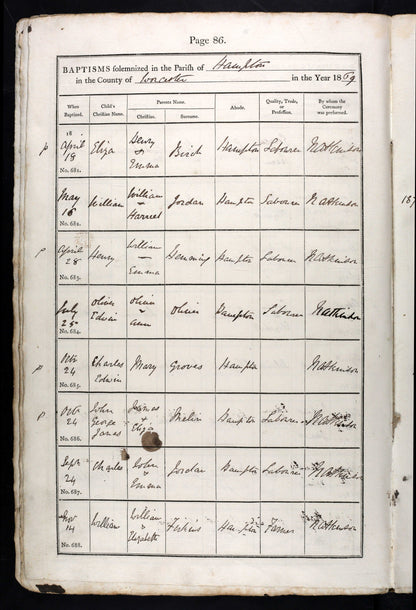 Page 86.
BAPTISMS solemnized in the Parish of Hampton
in the County of Worcester in the Year 1869
When Baptized. Child's Christian Name. Parents Name. Christian. Surname. Abode. Quality, Trade, or Profession. By whom the Ceremony was performed.
18
p April 18 Eliza Henry & Emma Birch Hampton Labourer
No. 681.
May 16 William William & Harriet Jordan Hampton Labourer
No. 682.
p April 28 Henry William Emma Hemming Hampton Labourer
No. 683.
July 25 Oliver Edwin Ann Hampton Labourer
No. 684.
p Octr 24 Charles Edwin Mary Groves Hampton
No. 685.
p Octr 24 John George James James & Eliza Hampton Labourer
No. 686.
Septr 24 Charles John & Emma Jordan Hampton Labourer
No. 687.
Novr 14 William William & Elizabeth Hampton Farmer
No. 688.
187